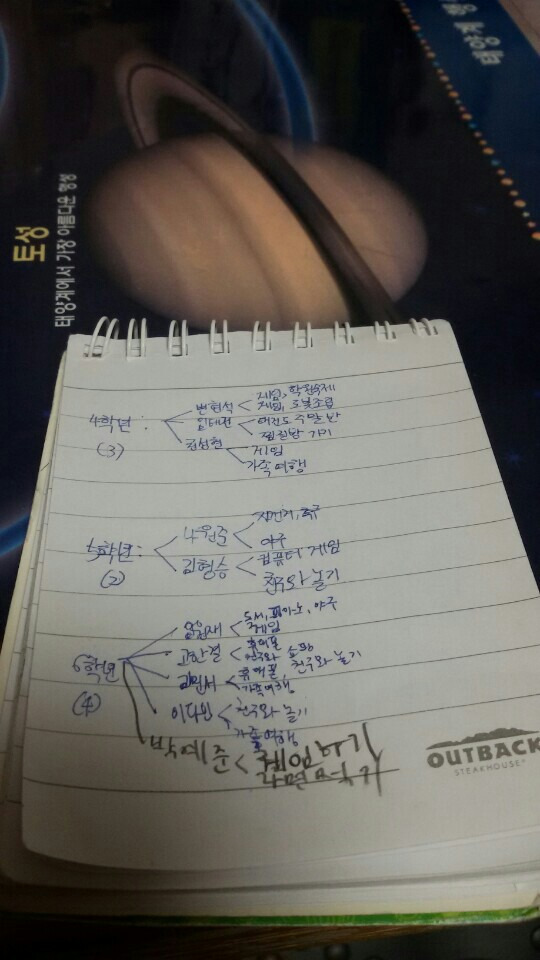 토성
태양계에서 가장 아름다운 행성
4학년 :
(3)
변현석 < 게임, 학원숙제
게임, 로봇조립
임태진 < 주말반
찜질방 가기
김성현 < 게임
가족여행
5학년 :
(2)
나원준 < 자전거, 축구
야구
김형승 < 컴퓨터 게임
친구와 놀기
6학년
(4)
독서, 피아노, 야구
게임
고한결 < 휴대폰
친구와 쇼핑
김민서 < 휴대폰, 친구와 놀기
가족여행
이다빈 < 친구와 놀기
가족여행
박예준 < 게임하기
라면먹기
OUTBACK
STEAKHOUSE®